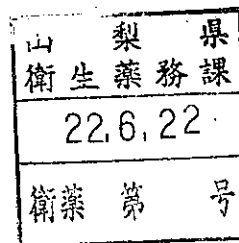 山梨県
衛生薬務課
22.6.22
衛薬第 号